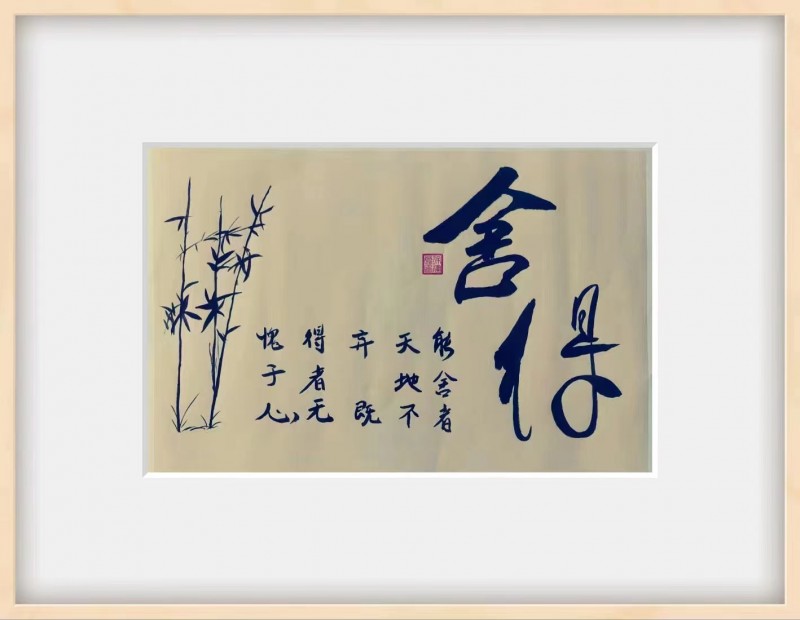 舍得
能舍者
天地不
弃既
得者无
愧于
人心